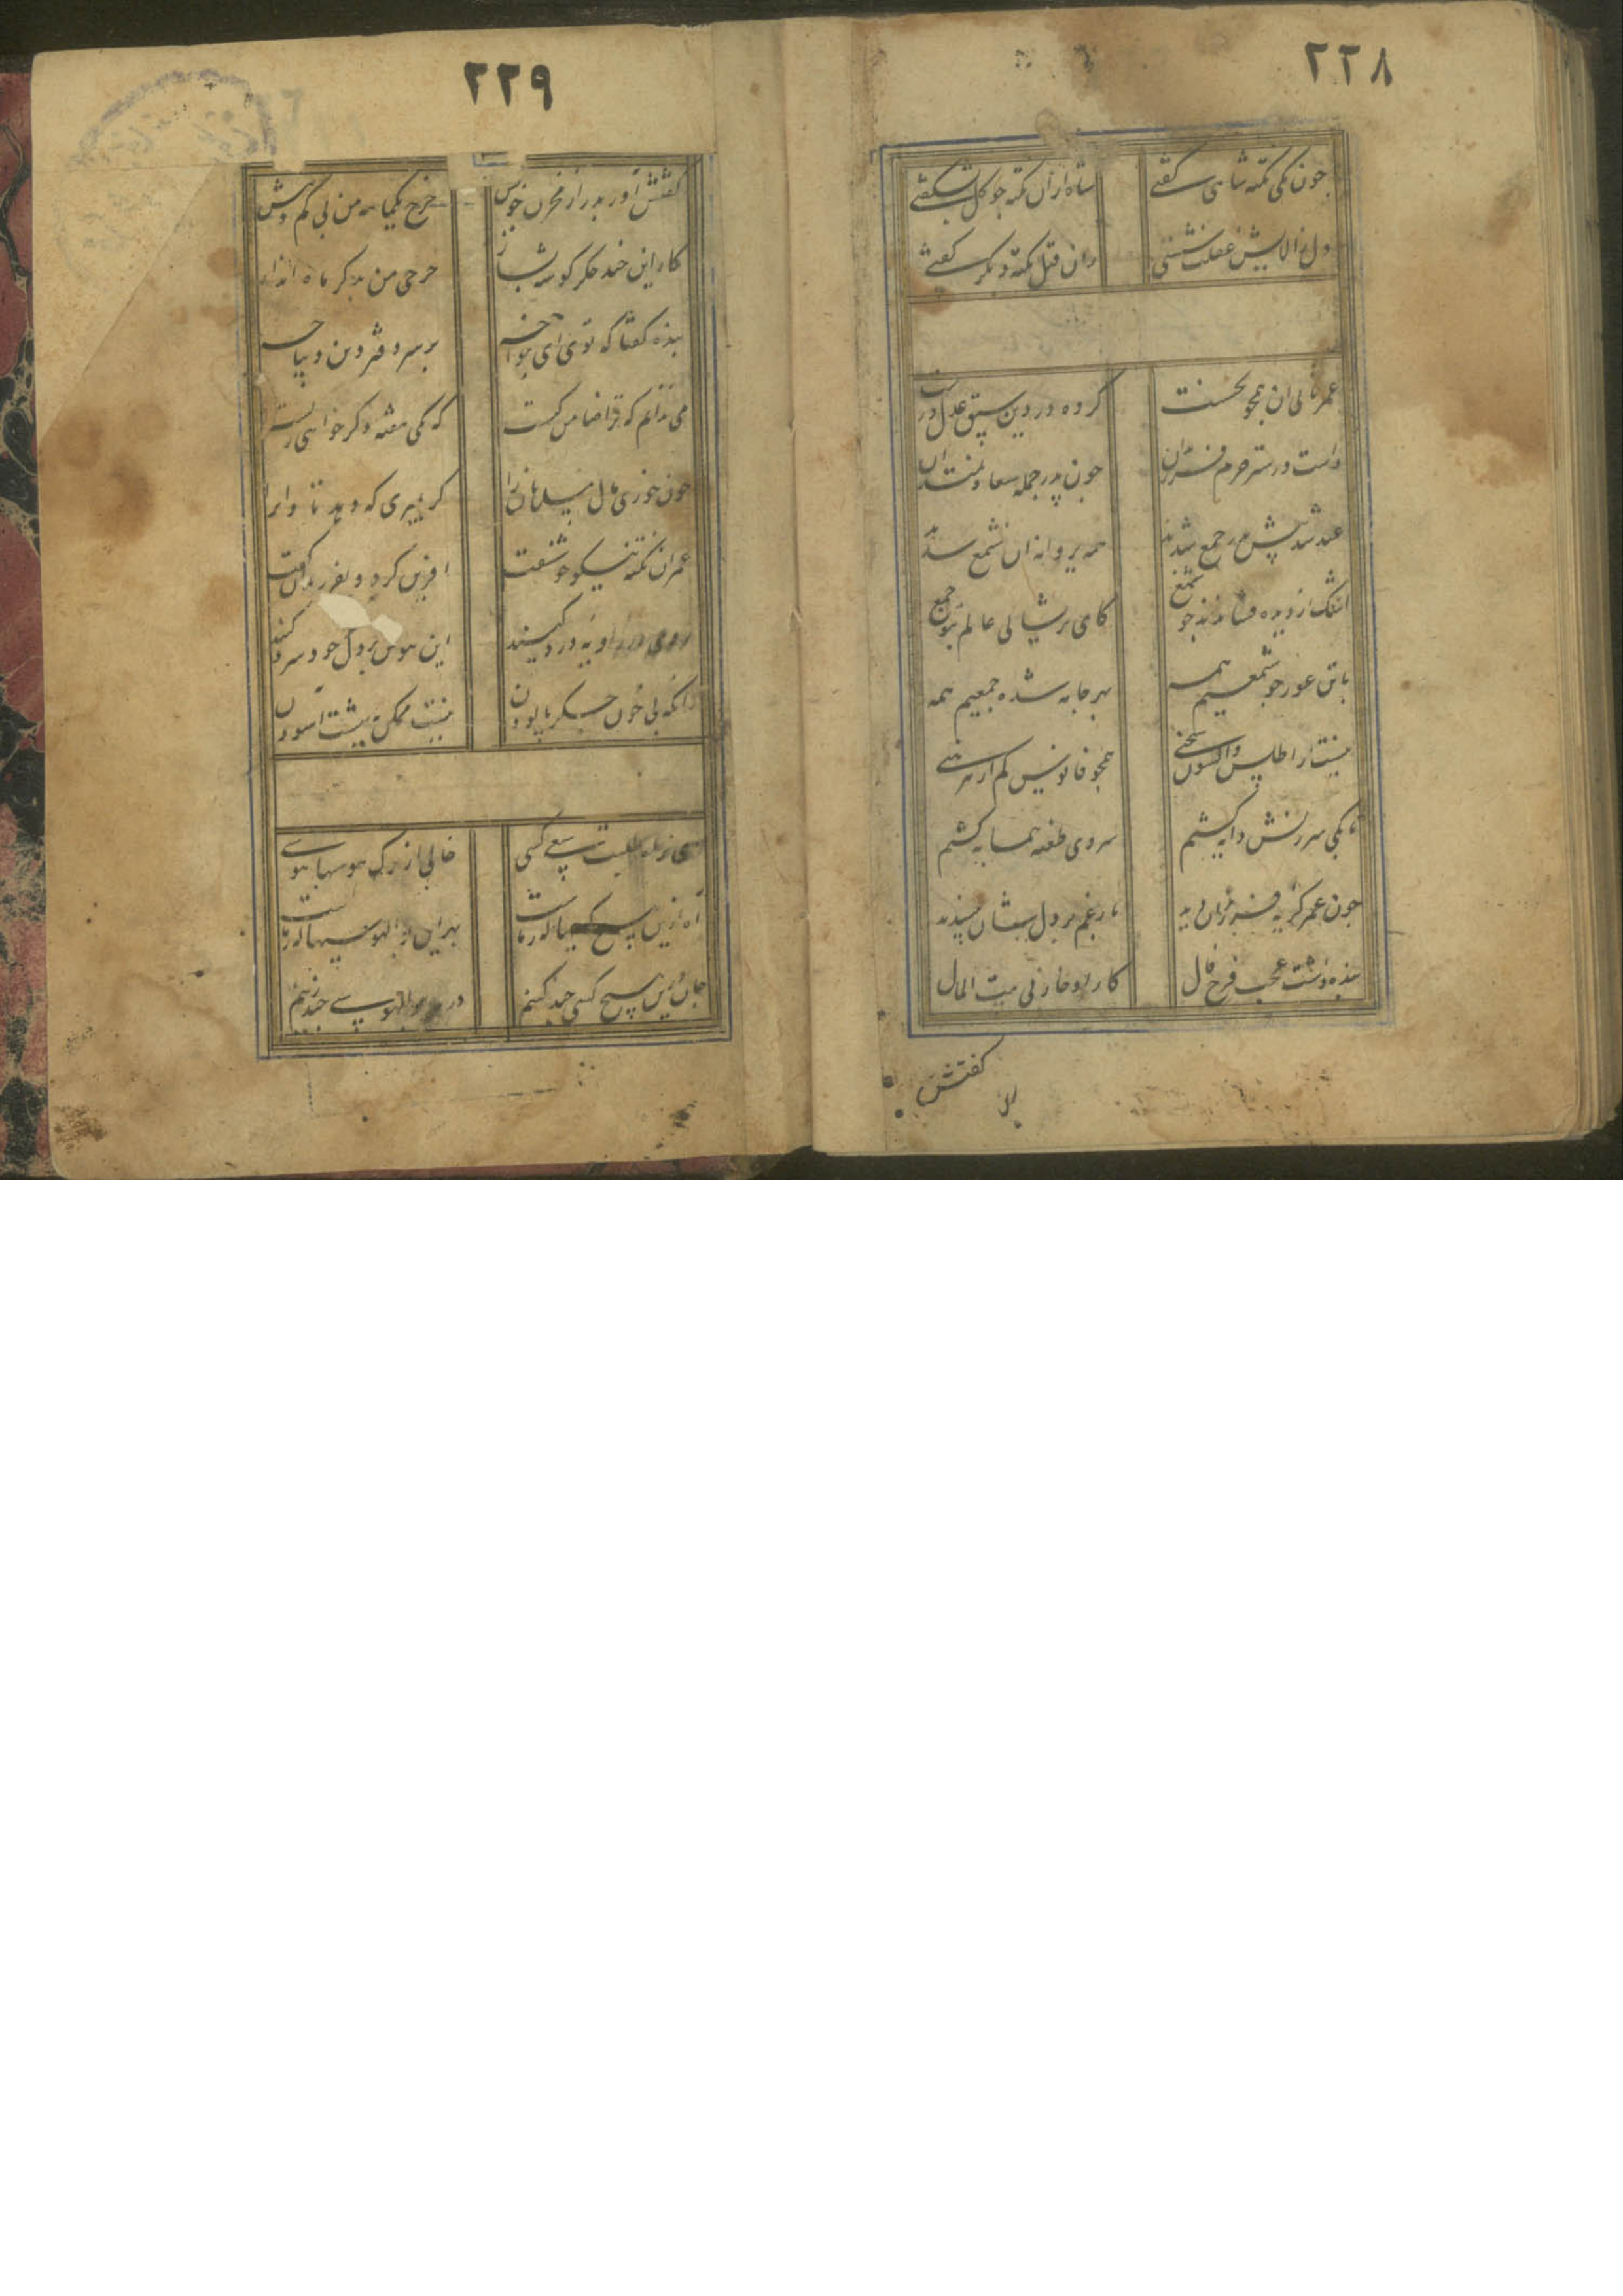 ٢٢٨
چون یکی نکته شاهی گفتی شاه از آن نکته چو گل بشکفتی
دل ز آلایش غفلت شستی زان قبل نکته دیگر گفتی
عمر ثانی آن همچو نخست کرده در دین سبق عدل درست
داشت در ستر حرم فرزندان چون پدر جمله سعادتمندان
عید شد پیش پدر جمع شدند همه پروانه آن شمع شدند
اشک از دیده فشاندند چو شمع کای پریشانی عالم ز تو جمع
با تن عور چو شمعیم همه بهر جامه شده جمعیم همه
نیست از اطلس و اکسون سخنی همچو فانوس کم از پیرهنی
تا بکی سرزنش دایه کشیم سردی طعنه همسایه کشیم
چون عمر گریه فرزندان دید بار غم بر دل ایشان نپسندید
بنده داشت عجب فرخ فال کار او خازنی بیت المال
گفتش
٢٢٩
گفتش آور بدر از مخزن خویش خرج یکماهه من بی کم و بیش
کار این چند جگر گوشه بساز خرجی من بدگر ماه انداز
بنده گفتا که توی ای خواجه بر سر دفتر دین دیباچه
می ندانم که قرا ضامن کیست که یکی هفته دگر خواهی زیست
چون خوری مال مسلمانان را گر بمیری که دهد تاوان را
عمر آن نکته نیکو چو شنفت آفرین کرد و بفرزندان گفت
روی در زاویه درد کنید این هوس بر دل خود سرد کنید
زانکه بی خون جگر پالودن نیست ممکن ببهشت آسودن
خالی از برک هوسها هوسی
آه ازین هیچ کسیها که رماست بهر این بوالهوسیها که رماست
جان ازین هیچ کسی چند کنیم در بوالهوسی چند زنیم